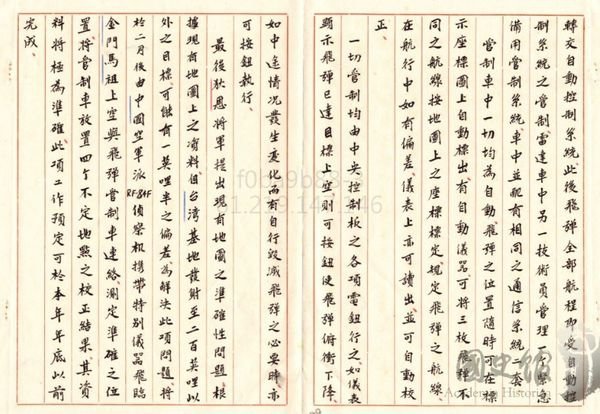 轉交自動控制系統此後飛彈全部航程即受自動控
制系統之管制雷達車中另一技術員管理一個緊急
備用管制系統車中並配有相同之通信系統一套
管制車中一切均為自動飛彈之位置隨時可在標
示座標圖上自動標出有自動儀器可將三枚飛彈不
同之航線按地圖上之座標標定規定飛彈之航線
在航行中如有偏差儀表上亦可讀出並可自動校
正
一切管制均由中央控制板之各項電鈕行之如儀表
顯示飛彈已達目標上空則可按鈕使飛彈俯衝下降
如中途情況發生變化而有自行毀滅飛彈之必要時亦
可按鈕執行
最後狄恩將軍提出現有地圖之準確性問題根
據現有地圖上之資料自台灣基地發射至二百英哩以
外之目標可能有一英哩半之偏差為解決此項問題將
於二月後由中國空軍派RF84F偵察机携帶特別儀器飛臨
金門馬祖上空與飛彈管制車連絡測定準確之位
置將管制車放置四個不定地點之校正結果其資
料將極為準確此項工作預定可於本年年底以前
完成
國史館
Academia Historica